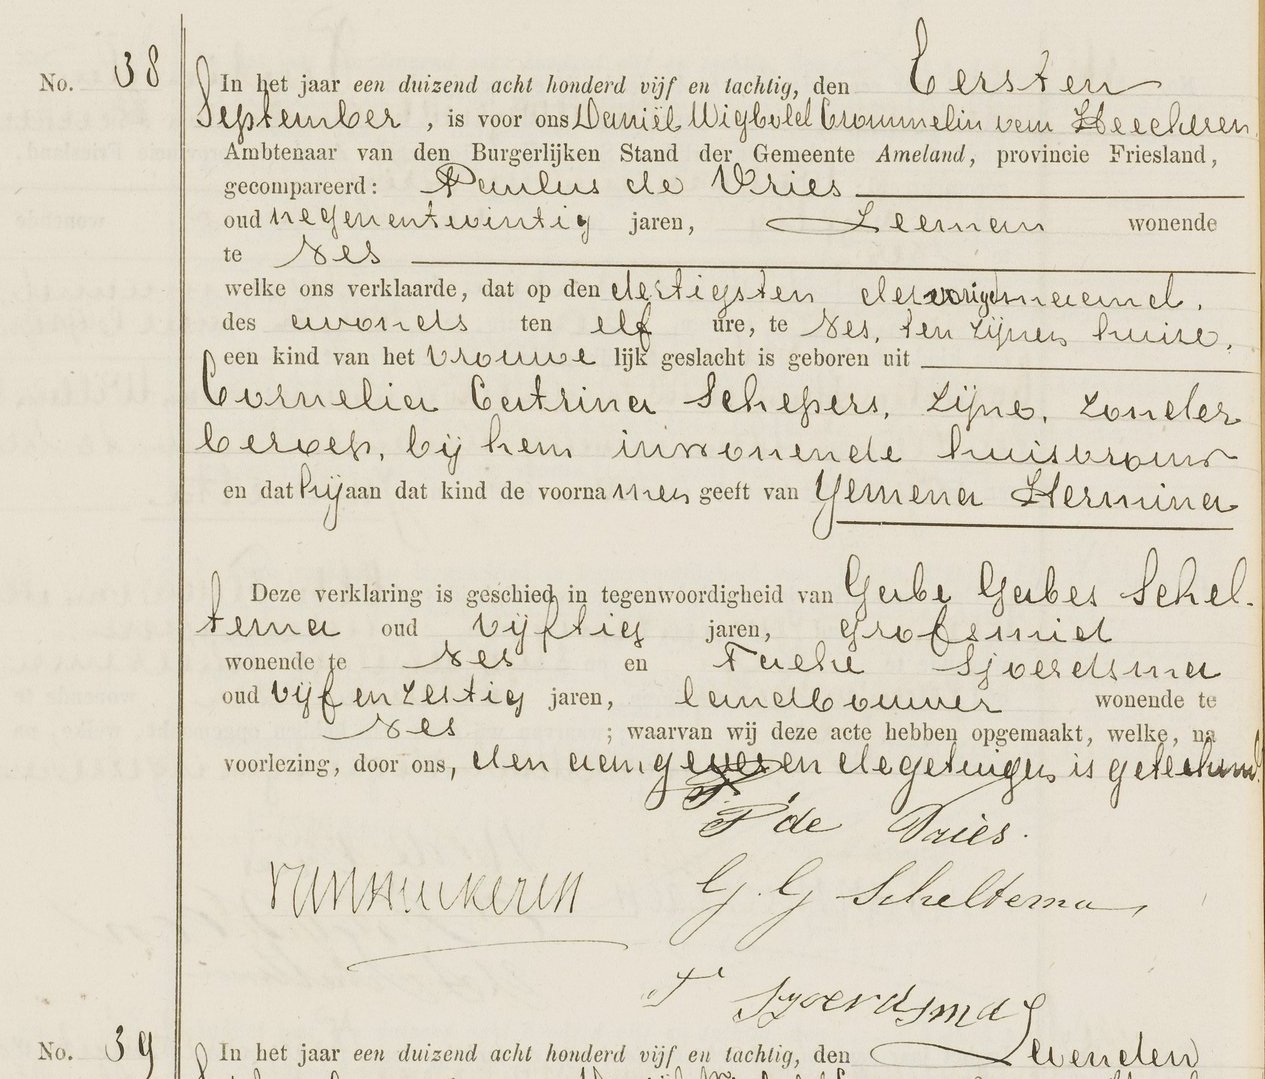 No. 38
In het jaar een duizend acht honderd vijf en tachtig, den Eersten
September, is voor ons Daniël Wigbold Crommelin van Heeckeren
Ambtenaar van den Burgerlijken Stand der Gemeente Ameland, provincie Friesland,
gecompareerd: Paulus de Vries
oud negenentwintig jaren, Zeeman wonende
te Nes
welke ons verklaarde, dat op den dertigsten der vorige maand,
des avonds ten elf ure, te Nes, ten zijnen huise,
een kind van het vrouwelijk geslacht is geboren uit
Cornelia Catrina Schepers, zijne, zonder
beroep, bij hem inwonende huisvrouw
en dat hij aan dat kind de voornamen geeft van Yemena Hermina
Deze verklaring is geschied in tegenwoordigheid van Gabe Gabes Schel-
tema oud vijftig jaren, grofsmid
wonende te Nes en Taeke Sjoerdsma
oud vijf en zestig jaren, landbouwer wonende te
Nes ; waarvan wij deze acte hebben opgemaakt, welke, na
voorlezing, door ons, den aangever en de getuigen is geteekend.
P de Vries.
van Heeckeren G. G Scheltema,
T Sjoerdsma
No. 39 In het jaar een duizend acht honderd vijf en tachtig, den Zevenden